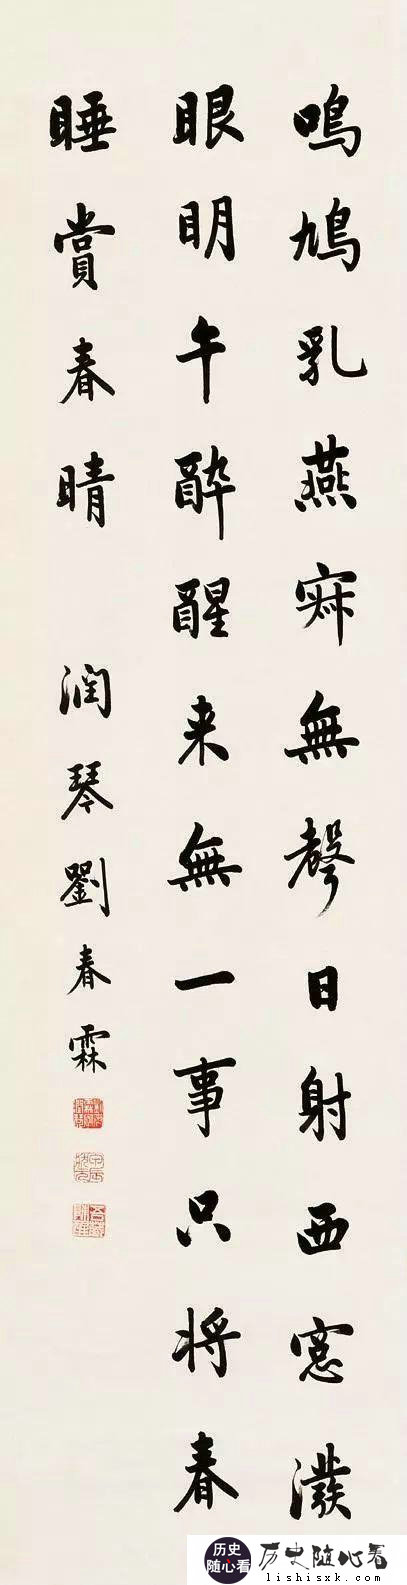 鳴鳩乳燕寂無聲日射西窓潑
眼明午醉醒来無一事只将春
睡賞春晴 潤琴劉春霖
历史
随心看
历史随心看
lishisxk.com